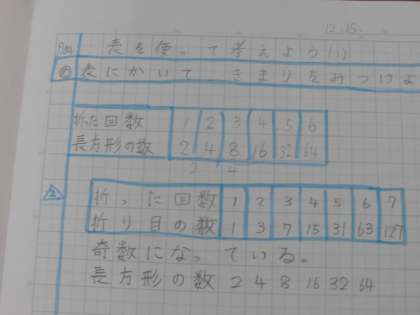 12.15
表を使って考えよう(1)
め 表にかいて きまりをみつけよ
折た回数 1 2 3 4 5 6
長方形の数 2 4 8 16 32 64
2 4
折った回数 1 2 3 4 5 6 7
折り目の数 1 3 7 15 31 63 127
奇数になっている。
長方形の数 2 4 8 16 32 64